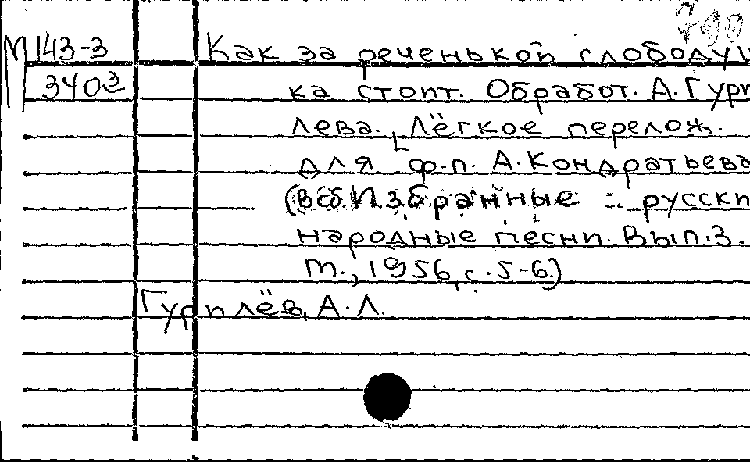 790
М 143-3 Как за реченькой слободуш
3403 ка стоит. Обработ. А. Гури
лева. Лёгкое перелож.
для ф.п. А. Кондратьева
(в сб. Избранные русски
народные песни. Вып. 3.
М., 1956, с. 5-6.)
Гурилёв, А. Л.